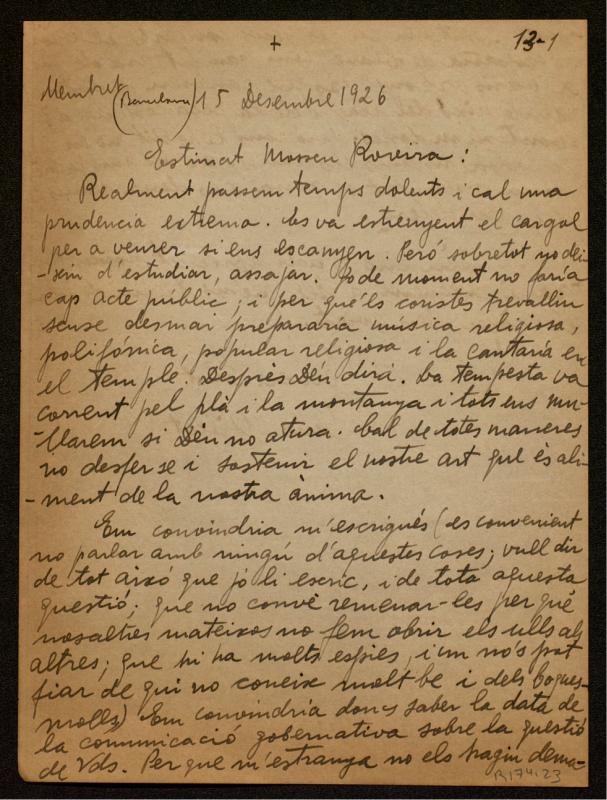 +
13-1
Membret
(Barcelona) 15 Desembre 1926
Estimat Mossen Rovira:
Realment passem temps dolents i cal una
prudencia extrema. Es va estrenyent el cargol
per a veurer si ens escanyen. Peró sobretot no dei-
-xin d'estudiar, assajar. Jo de moment no faría
cap acte públic; i per que'ls coristes trevallin
sense desmai prepararía música religiosa,
polifónica, popular religiosa i la cantaría en
el temple. Desprès Déu dirá. La tempesta va
corrent pel plà i la montanya i tots ens mu-
-llarem si Déu no atura. Cal de totes maneres
no desfer-se i sostenir el nostre art que és ali-
-ment de la nostra ànima.
Em convindria m'escrigués (es convenient
no parlar amb ningú d'aquestes coses; vull dir
de tot aixó que jo li escric, i de tota aquesta
questió; que no convè remenar-les per què
nosaltres mateixos no fem obrir els ulls als
altres; que hi ha molts espies, i un no's pot
fiar de qui no coneix molt be i dels boques-
molls) Em convindria doncs saber la data de
la comunicació gobernativa sobre la questió
de Vds. Per que m'estranya no els hagin dema-
R.174.23